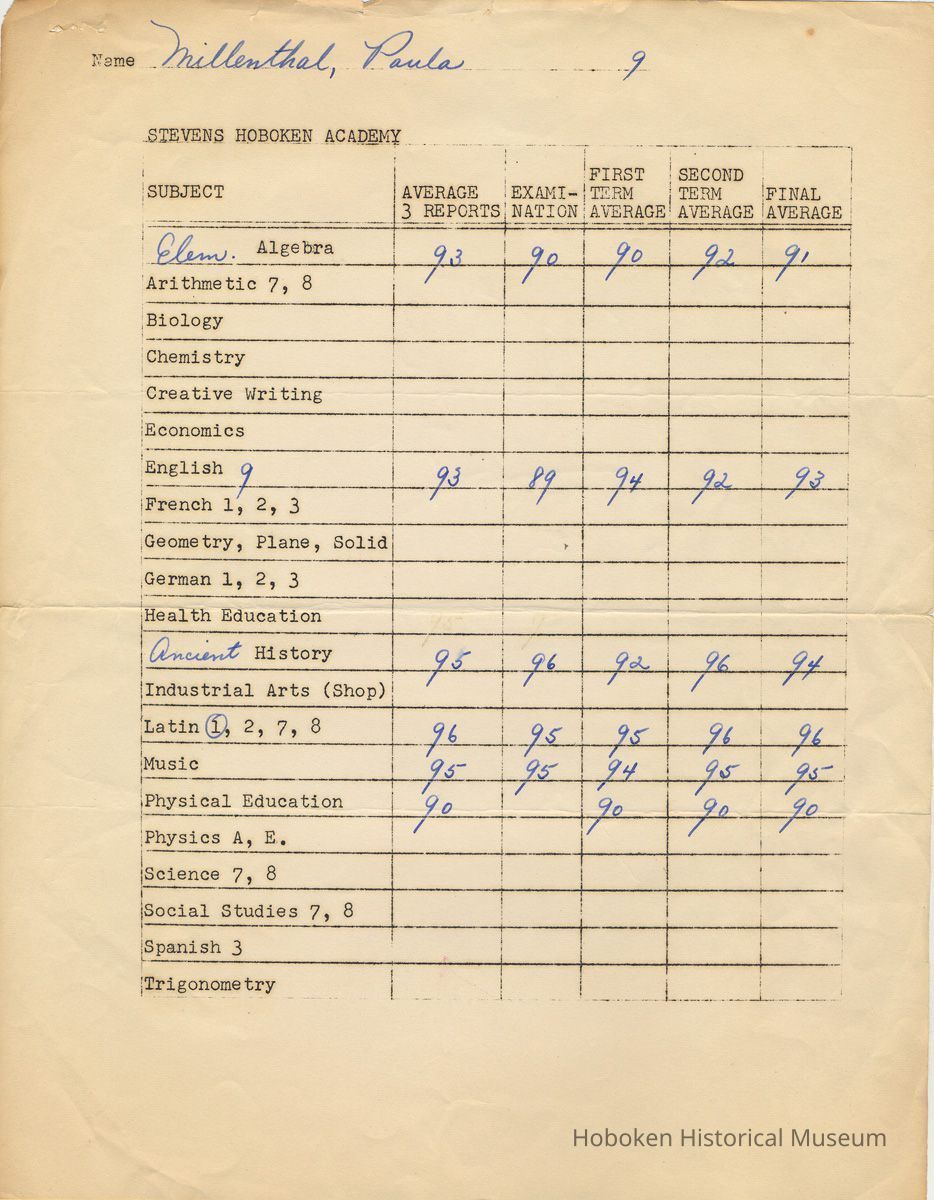 Name Millenthal, Paula 9
STEVENS HOBOKEN ACADEMY
SUBJECT AVERAGE 3 REPORTS EXAMI-NATION FIRST TERM AVERAGE SECOND TERM AVERAGE FINAL AVERAGE
Elem. Algebra 93 90 90 92 91
Arithmetic 7, 8
Biology
Chemistry
Creative Writing
Economics
English 9 93 89 94 92 93
French 1, 2, 3
Geometry, Plane, Solid
German 1, 2, 3
Health Education
Ancient History 95 96 92 96 94
Industrial Arts (Shop)
Latin 1, 2, 7, 8 96 95 95 96 96
Music 95 95 94 95 95
Physical Education 90 90 90 90
Physics A, E.
Science 7, 8
Social Studies 7, 8
Spanish 3
Trigonometry
Hoboken Historical Museum